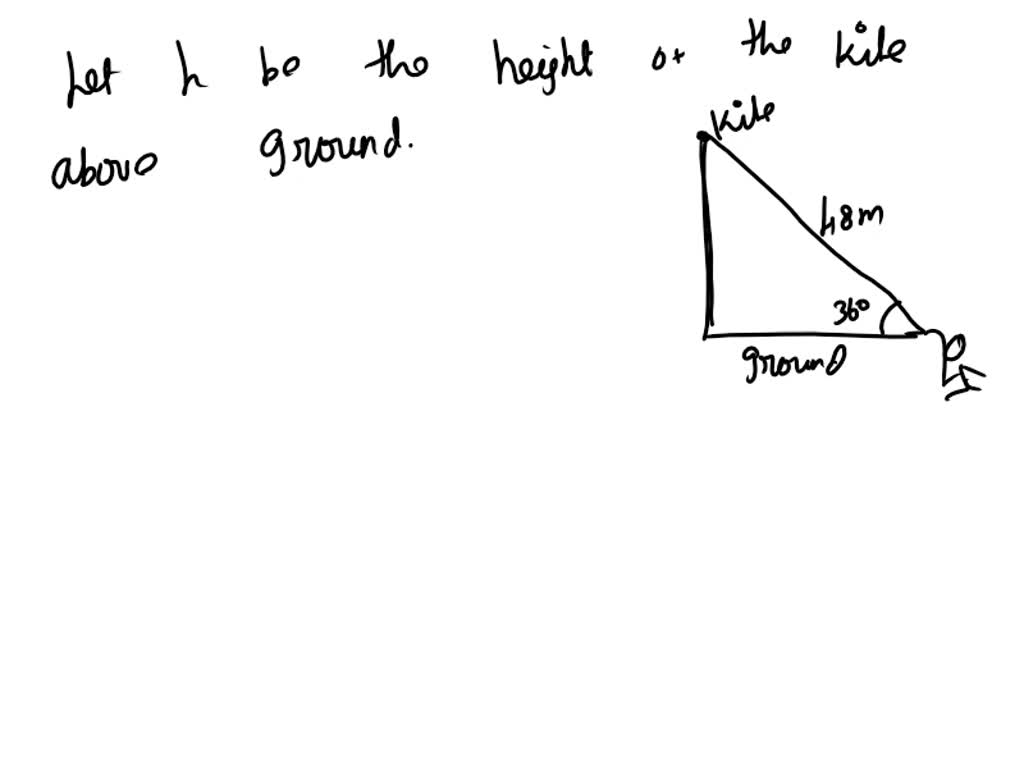 Let h be the height of the kite
above ground.
kite
48m
36°
ground